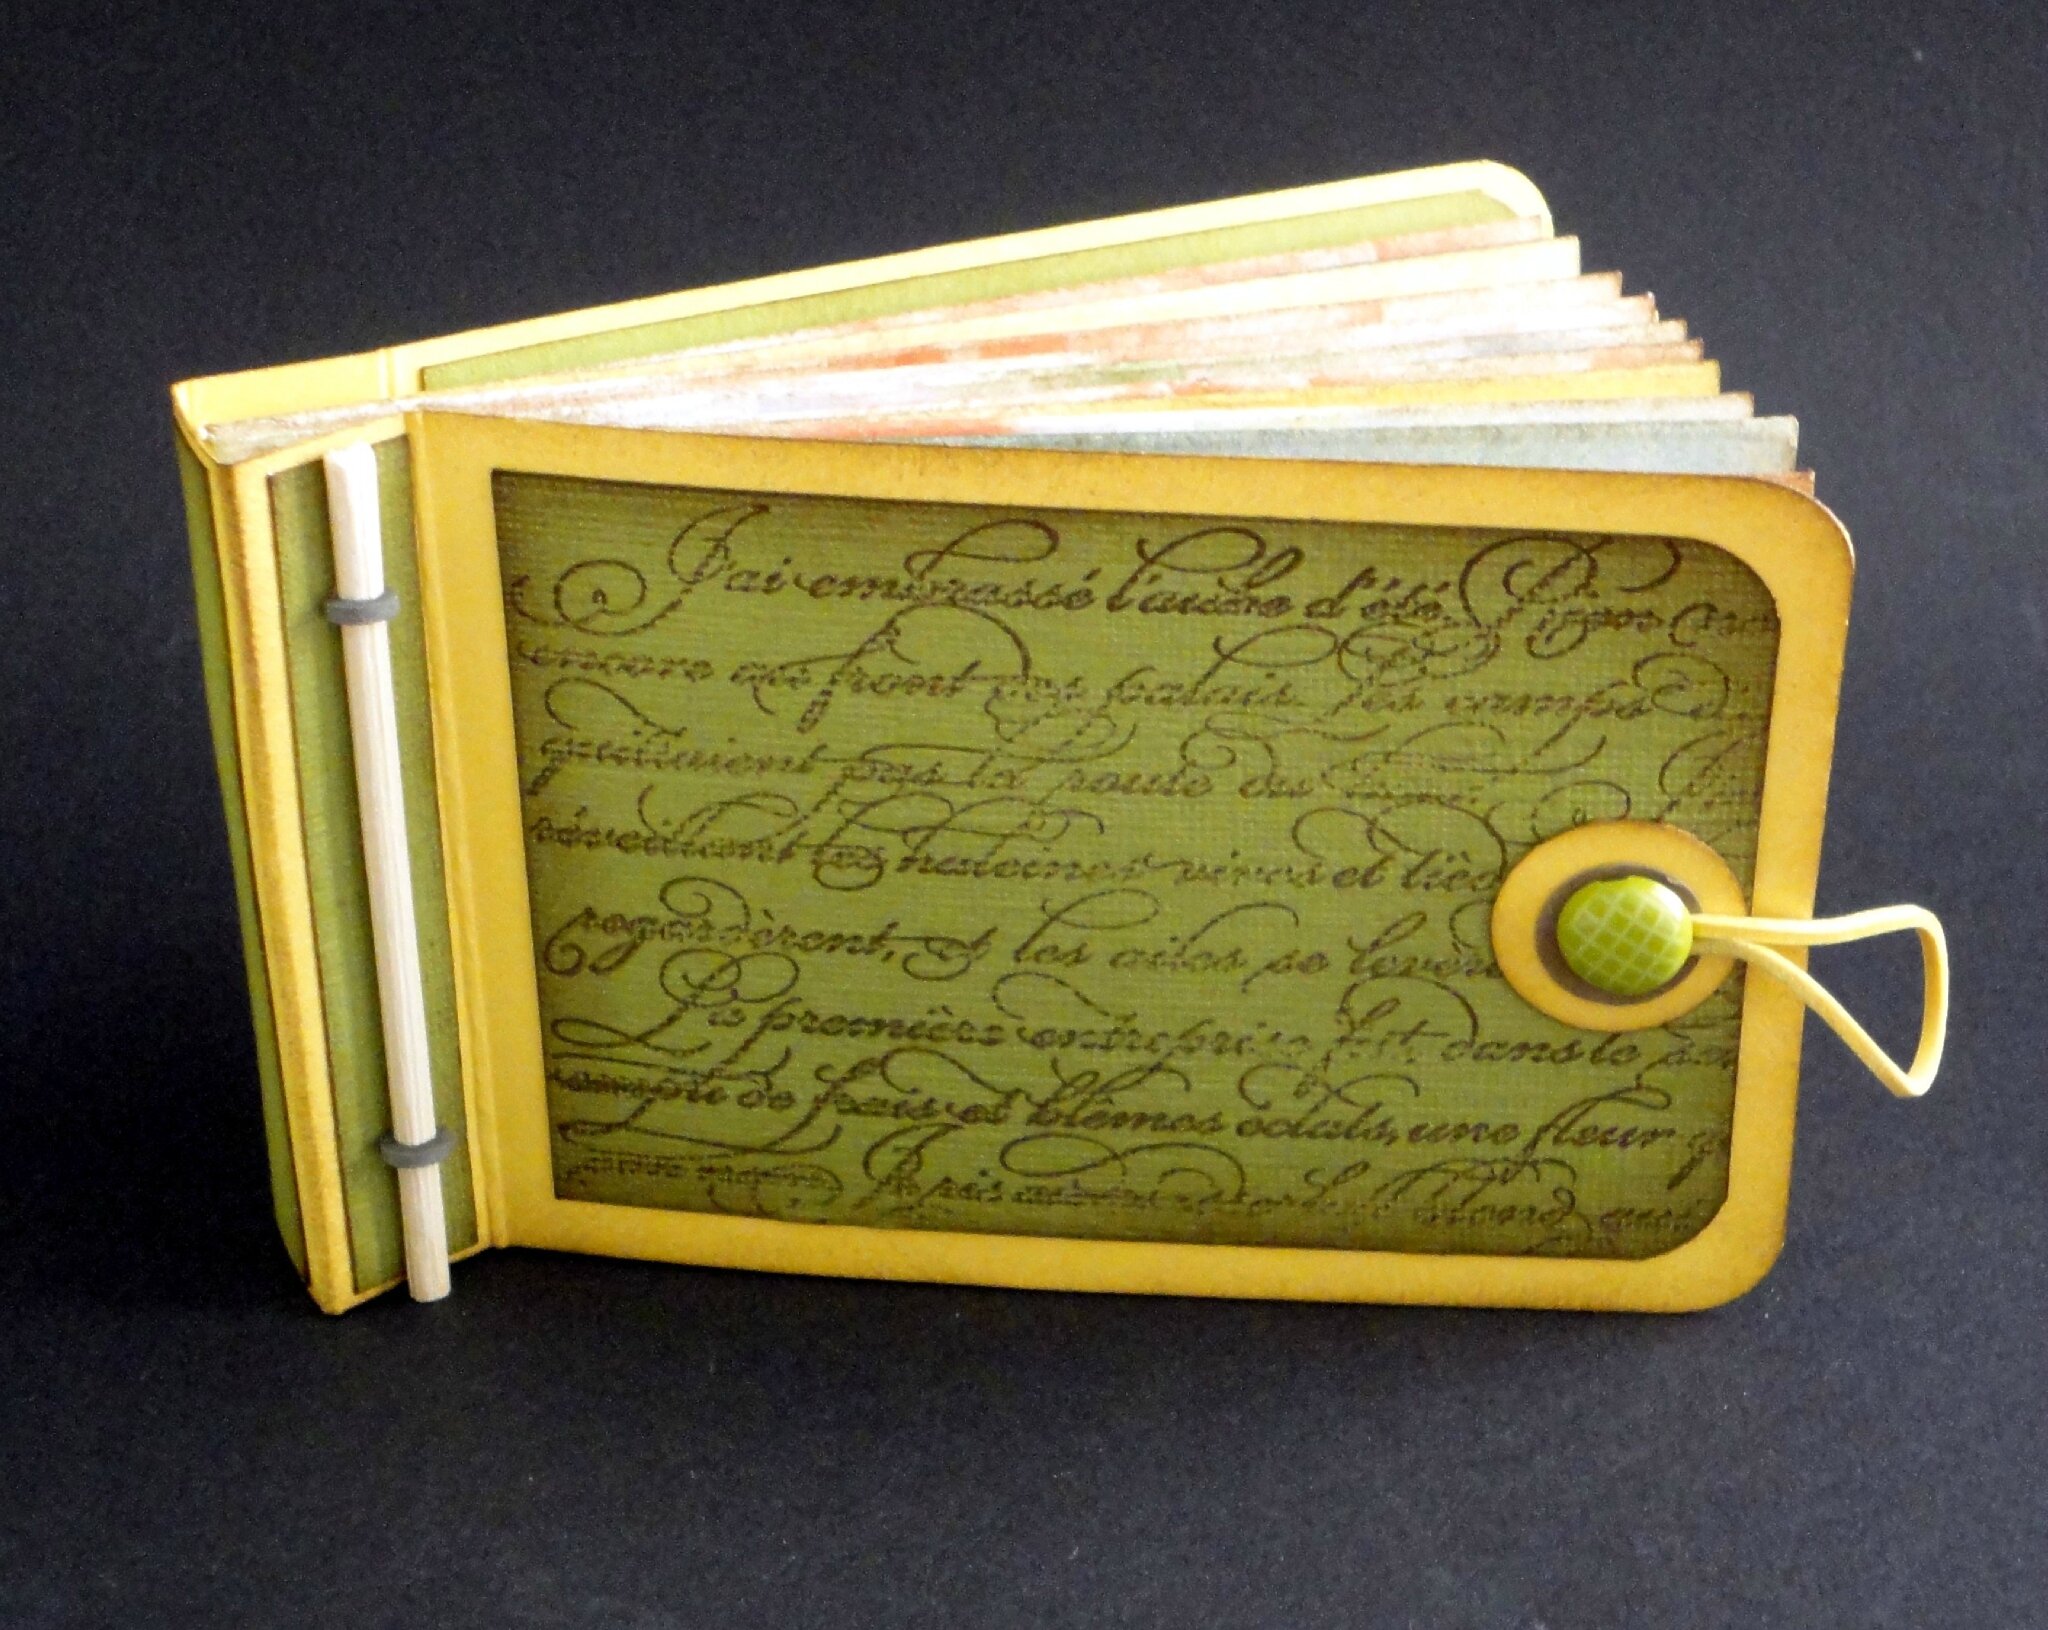 J'ai embrassé l'aube d'été. Rien
encore au front des palais. Les camps d'
quittaient pas la route du
réveillant les haleines vives et tièd
regardèrent, et les ailes se levèr
La première entreprise fut, dans le sen
empli de frais et blêmes éclats, une fleur q
Je ris